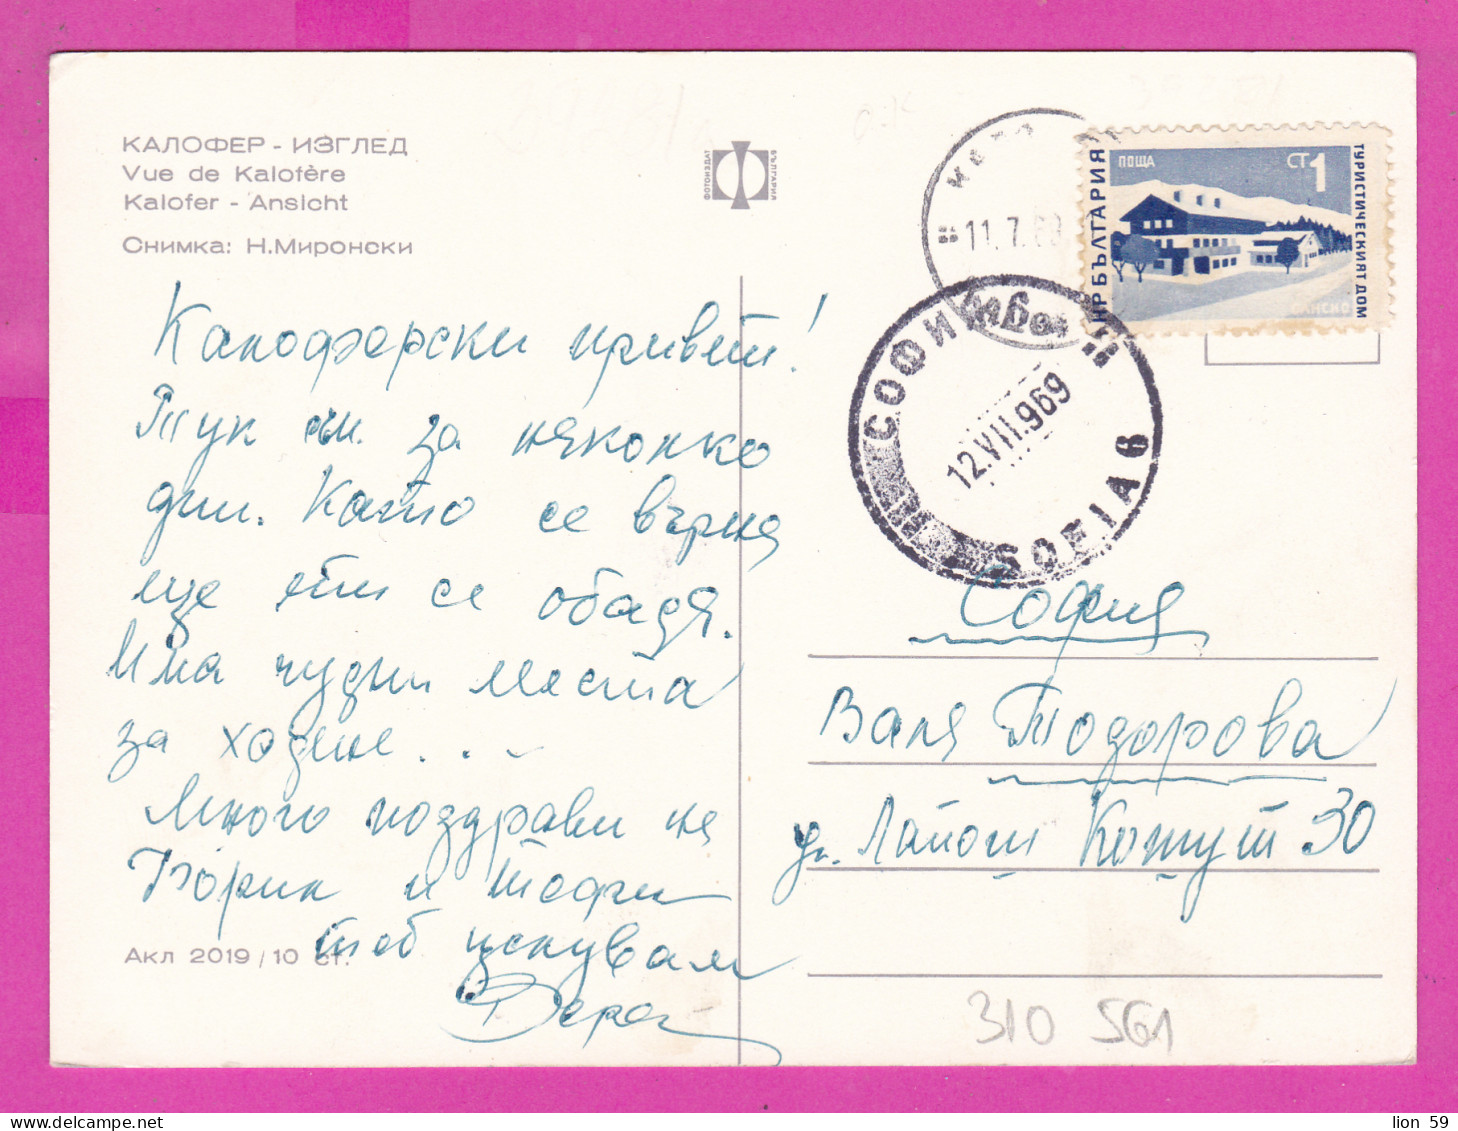 КАЛОФЕР - ИЗГЛЕД
Vue de Kalofère
Kalofer - Ansicht
Снимка: Н.Миронски
ФОТОИЗДАТ
БЪЛГАРИЯ
Калоферски привет!
Тук съм за няколко
дни. Като се върна
ще ти се обадя.
Има чудни места
за ходене...
Много поздрави на
и
теб целувам
Вера
Акл 2019 / 10 ст.
11.7.69
СОФИЯ
12.VII.969
SOFIA 6
ПОЩА
СТ 1
НР БЪЛГАРИЯ
ТУРИСТИЧЕСКИЯТ ДОМ
БАНСКО
София
Валя Тодорова
ул. Лайош Кошут 30
310 561
lion 59